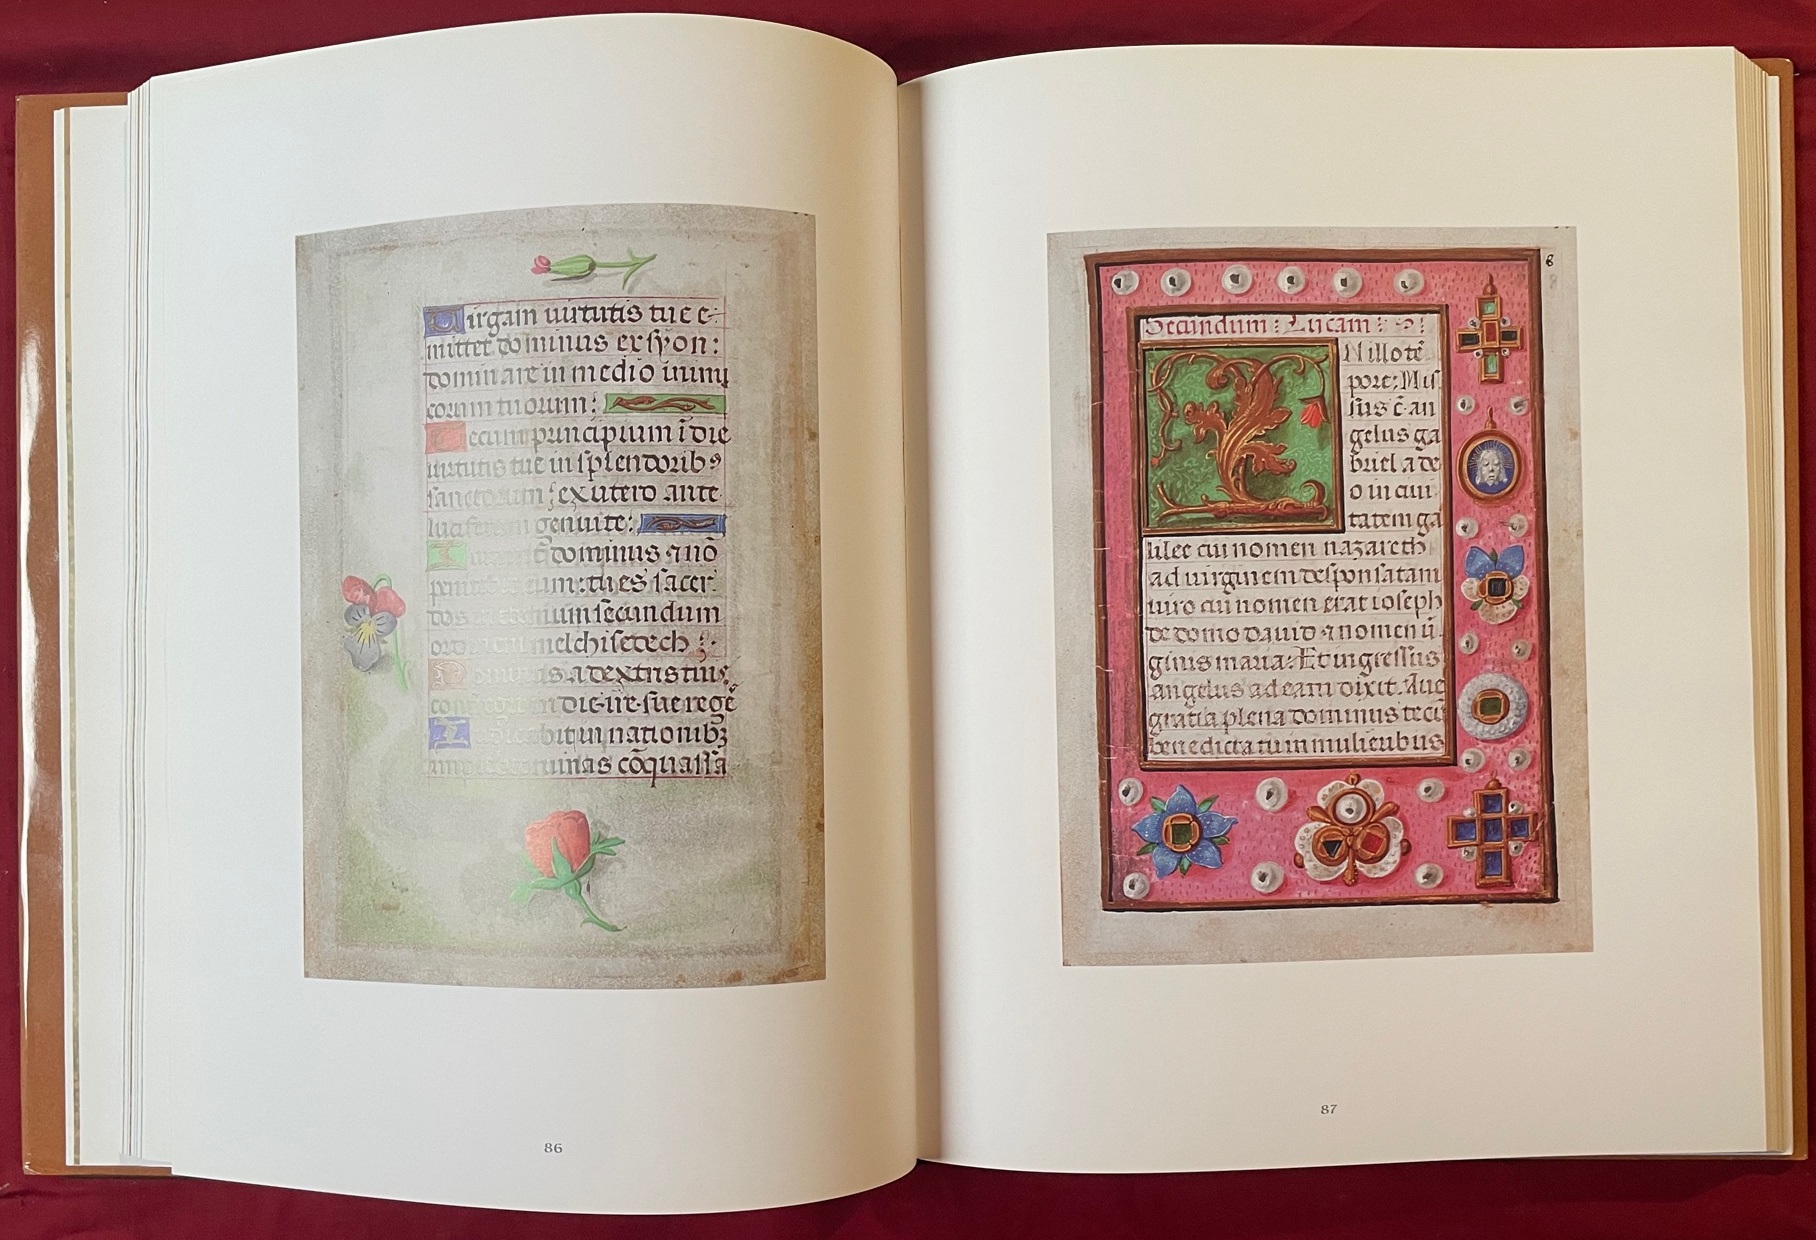 Virgam uirtutis tue e-
mittet dominus ex syon:
dominare in medio inimi
corum tuorum:
Tecum principium ī die
uirtutis tue in splendoribꝰ
sanctorum: ex utero ante
luciferum genuite:
Iurauit dominus ⁊ nō
penitebit eum: tu es sacer
dos in eternum secundum
ordinem melchisetech:
Dominus a dextris tuis:
confregit in die ire sue regē
Iudicabit in nationibꝫ
implebit ruinas cōquassa
86
6
Secundum: Lucam:
N illo tē
pore: Mis
sus ē an
gelus ga
briel a de
o in ciui
tatem ga
lilee cui nomen nazareth
ad uirginem desponsatam
uiro cui nomen erat ioseph
de domo dauid ⁊ nomen ū
ginis maria: Et ingressus
angelus ad eam dixit. Aue
gratia plena dominus tecū
benedicta tu in mulieribus
87